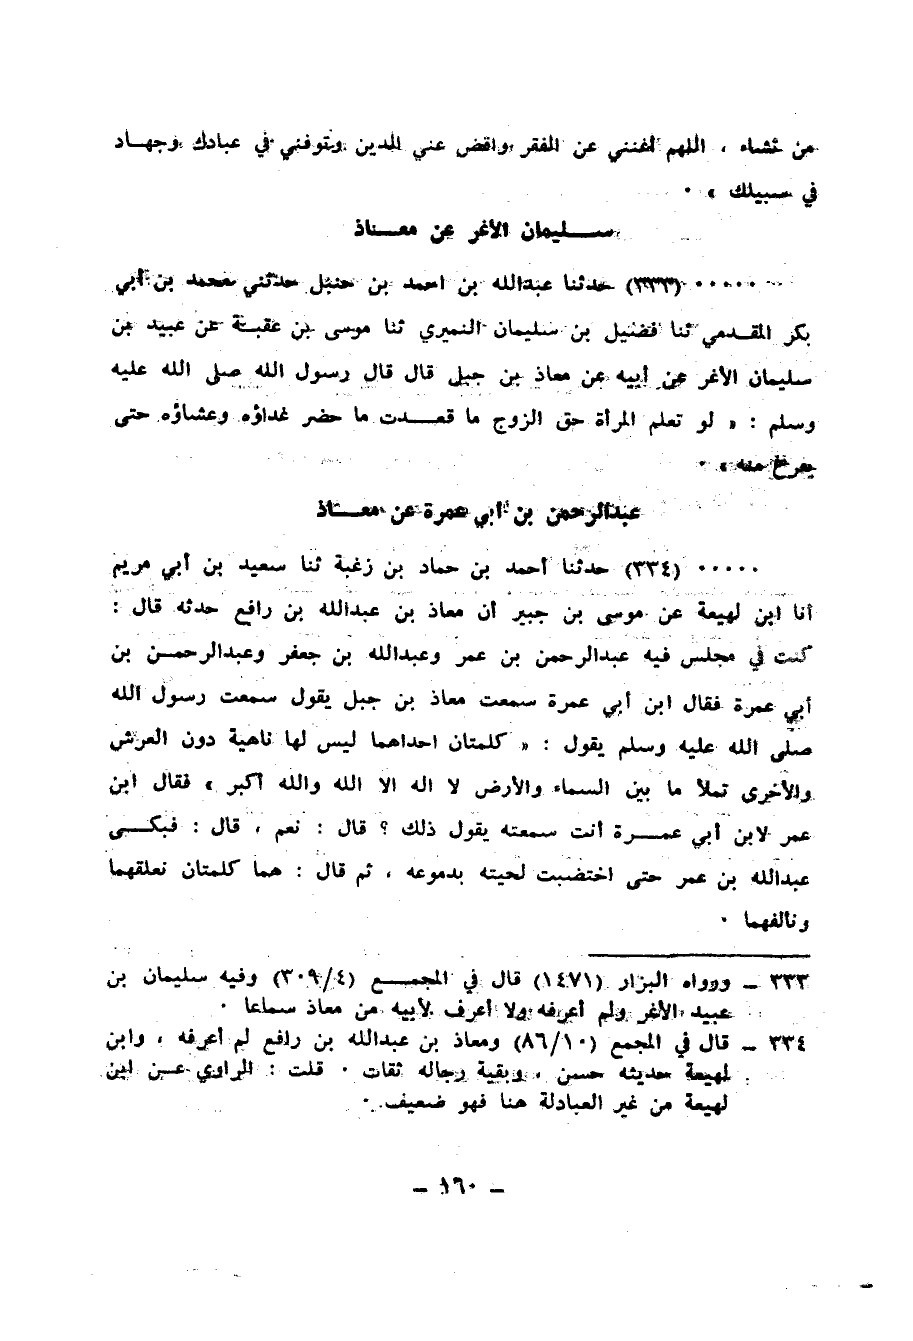 من تشاء ، اللهم أغنني عن الفقر واقض عني الدين وتوفني في عبادك وجهـاد
في سبيلك » ٠
سـليمان الأغر عن معـاذ
٠٠٠٠٠ (٣٣٣) حدثنا عبدالله بن احمد بن حنبل حدثني محمد بن أبي
بكر المقـدمي ثنا فضيل بن سليمان النميري ثنا موسى بن عقبـة عن عبيد بن
سليمان الأغر عن أبيه عن معاذ بن جبل قال قال رسول الله صلى الله عليه
وسلم : « لو تعلم المرأة حق الزوج ما قعـدت ما حضر غداؤه وعشاؤه حتى
يفرغ منه » ٠
عبدالرحمن بن أبي عمرة عن معـاذ
٠٠٠٠٠ (٣٣٤) حدثنا أحمد بن حماد بن زغبة ثنا سعيد بن أبي مريم
أنا ابن لهيعة عن موسى بن جبير أن معاذ بن عبدالله بن رافع حدثه قال :
كنت في مجلس فيه عبدالرحمن بن عمر وعبدالله بن جعفر وعبدالرحمـن بن
أبي عمرة فقال ابن أبي عمرة سمعت معاذ بن جبل يقول سمعت رسول الله
صلى الله عليه وسلم يقول : « كلمتان احداهما ليس لها ناهية دون العرش
والأخرى تملأ ما بين السماء والأرض لا اله الا الله والله أكبر » فقال ابن
عمر لابن أبي عمـرة أنت سمعته يقول ذلك ؟ قال : نعم ، قال : فبكـى
عبدالله بن عمر حتى اختضبت لحيته بدموعه ، ثم قال : هما كلمتان نعلقهما
ونالفهما ٠
٣٣٣ ـ ورواه البزار (١٤٧١) قال في المجمـع (٣٠٩/٤) وفيه سليمان بن
عبيد الأغر ولم أعرفه ولا أعرف لأبيه من معاذ سماعا ٠
٣٣٤ ـ قال في المجمع (٨٦/١٠) ومعاذ بن عبدالله بن رافع لم أعرفه ، وابن
لهيعة حديثه حسن ، وبقية رجاله ثقات ٠ قلت : الراوي عـن ابن
لهيعة من غير العبادلة هنا فهو ضعيف ٠
ـ ١٦٠ ـ